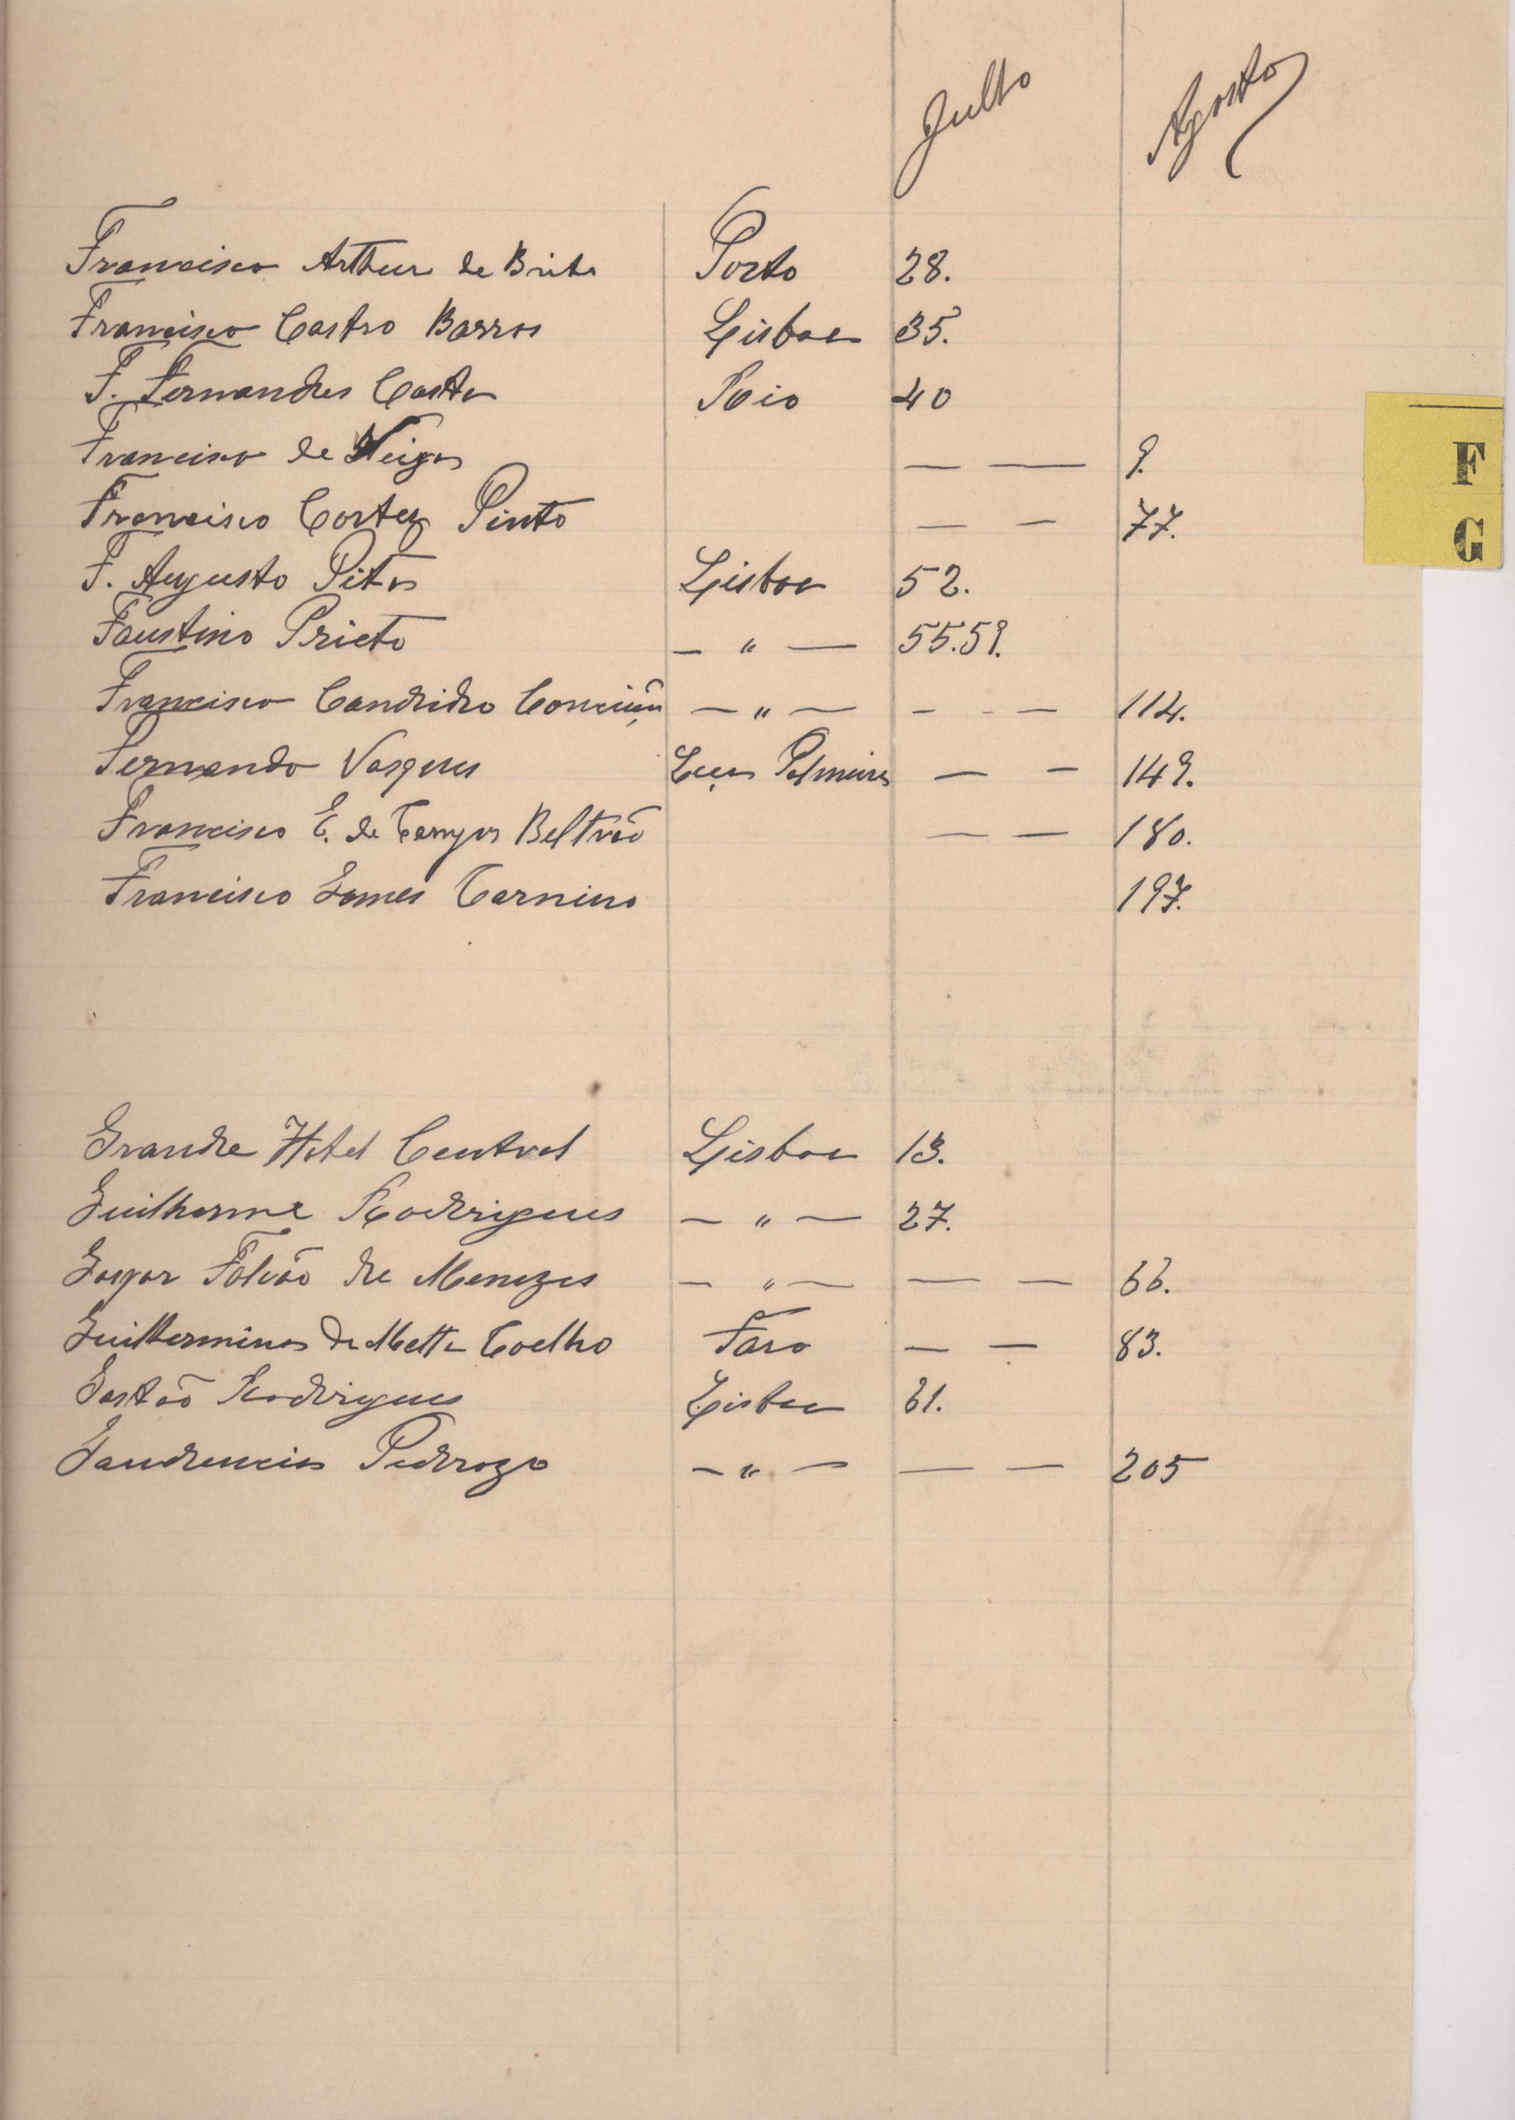 Julho Agosto
Francisco Arthur de Brito Porto 28.
Francisco Castro Barros Lisboa 35.
F. Fernandes Costa Rio 40
Francisco de Veiga — — 9.
Francisco Cortez Pinto — — 77.
F. Augusto Pitta Lisboa 52.
Faustino Prieto — " — 55.59.
Francisco Candido Conceição — " — - - — 114.
Fernando Vasques Palmeira — — 149.
Francisco E. de Campos Beltrão — — 180.
Francisco Gomes 197.
F
G
Grande Hotel Central Lisboa 13.
Guilherme Rodrigues — " — 27.
Gaspar Falcão de Menezes — " — — — 66.
Guilhermina da Motta Coelho Faro — — 83.
Gastão Rodrigues Lisboa 61.
Gaudencio Pedrozo — " — — — 205